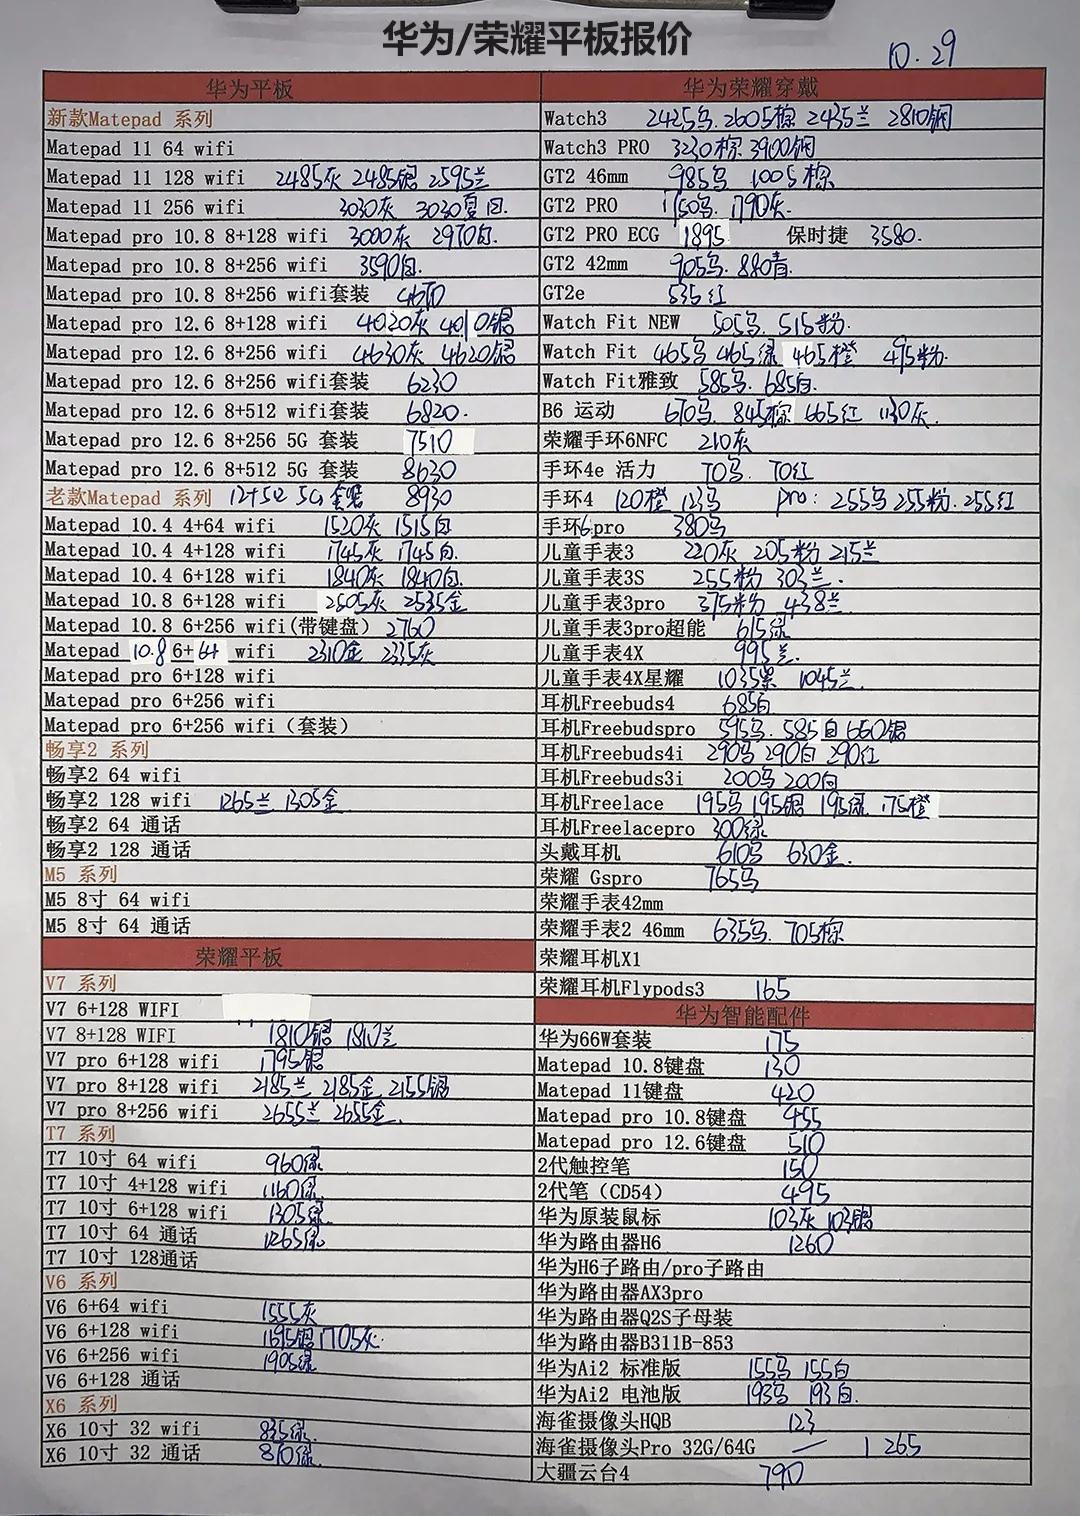 华为/荣耀平板报价
10.29
华为平板
新款Matepad 系列
Matepad 11 64 wifi
Matepad 11 128 wifi 2485灰 2485银 2595兰
Matepad 11 256 wifi 3030灰 3030夏日.
Matepad pro 10.8 8+128 wifi 3000灰 2970白.
Matepad pro 10.8 8+256 wifi 3590白.
Matepad pro 10.8 8+256 wifi套装
Matepad pro 12.6 8+128 wifi 4020灰 4010银
Matepad pro 12.6 8+256 wifi 4630灰 4620银
Matepad pro 12.6 8+256 wifi套装 6230
Matepad pro 12.6 8+512 wifi套装 6820.
Matepad pro 12.6 8+256 5G 套装 7510
Matepad pro 12.6 8+512 5G 套装 8630
老款Matepad 系列 12+512 5G 套装 8930
Matepad 10.4 4+64 wifi 1520灰 1515白
Matepad 10.4 4+128 wifi 1745灰 1745白.
Matepad 10.4 6+128 wifi 1840灰 1840白.
Matepad 10.8 6+128 wifi 2505灰 2535金
Matepad 10.8 6+256 wifi(带键盘) 2760
Matepad 10.8 6+64 wifi 2310金 2335灰
Matepad pro 6+128 wifi
Matepad pro 6+256 wifi
Matepad pro 6+256 wifi（套装）
畅享2 系列
畅享2 64 wifi
畅享2 128 wifi 1265兰 1305金
畅享2 64 通话
畅享2 128 通话
M5 系列
M5 8寸 64 wifi
M5 8寸 64 通话
荣耀平板
V7 系列
V7 6+128 WIFI
V7 8+128 WIFI 1810银 1810兰
V7 pro 6+128 wifi 1795银
V7 pro 8+128 wifi 2185兰 2185金 2155银
V7 pro 8+256 wifi 2655兰 2655金.
T7 系列
T7 10寸 64 wifi 960绿
T7 10寸 4+128 wifi 1160绿.
T7 10寸 6+128 wifi 1305绿
T7 10寸 64 通话 1265绿
T7 10寸 128通话
V6 系列
V6 6+64 wifi 1555灰
V6 6+128 wifi 1695银 1705灰
V6 6+256 wifi 1905绿
V6 6+128 通话
X6 系列
X6 10寸 32 wifi 835绿.
X6 10寸 32 通话 810绿.
华为荣耀穿戴
Watch3 2425乌. 2605棕 2435兰 2810钢
Watch3 PRO 3230棕 3900钢
GT2 46mm 985乌 1005棕
GT2 PRO 1750乌. 1790灰.
GT2 PRO ECG 1895 保时捷 3580.
GT2 42mm 905乌. 880青.
GT2e 535红
Watch Fit NEW 505乌. 515粉.
Watch Fit 465乌 465绿 465橙 495粉.
Watch Fit雅致 585乌. 685白.
B6 运动 670乌. 845棕 665红 1130灰.
荣耀手环6NFC 210灰
手环4e 活力 70乌. 70红
手环4 120橙 123乌 pro: 255乌 255粉. 255红
手环6 pro 380乌
儿童手表3 220灰 205粉 215兰
儿童手表3S 255粉 303兰.
儿童手表3pro 375粉 438兰
儿童手表3pro超能 615绿
儿童手表4X 995兰.
儿童手表4X星耀 1035黑 1045兰.
耳机Freebuds4 685白
耳机Freebudspro 595乌. 585白 660银
耳机Freebuds4i 290乌 290白 290红
耳机Freebuds3i 200乌 200白
耳机Freelace 195乌 195银 195绿 175橙
耳机Freelacepro 300绿
头戴耳机 610乌 630金.
荣耀 Gspro 765乌
荣耀手表42mm
荣耀手表2 46mm 635乌. 705棕
荣耀耳机X1
荣耀耳机Flypods3 165
华为智能配件
华为66W套装 175
Matepad 10.8键盘 130
Matepad 11键盘 420
Matepad pro 10.8键盘 455
Matepad pro 12.6键盘 510
2代触控笔 150
2代笔（CD54） 495
华为原装鼠标 103灰 103银
华为路由器H6 1260
华为H6子路由/pro子路由
华为路由器AX3pro
华为路由器Q2S子母装
华为路由器B311B-853
华为Ai2 标准版 155乌 155白
华为Ai2 电池版 193乌 193白.
海雀摄像头HQB 123
海雀摄像头Pro 32G/64G — | 265
大疆云台4 790